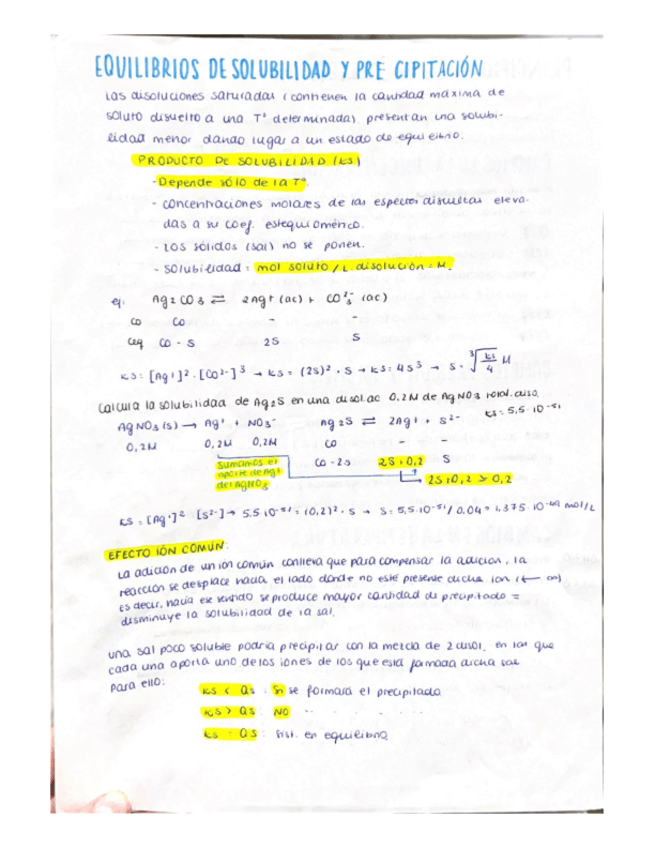 EQUILIBRIOS DE SOLUBILIDAD Y PRE CIPITACIÓN
Las disoluciones saturadas (contienen la cantidad máxima de
soluto disuelto a una Tª determinada) presentan una solubi-
lidad menor dando lugar a un estado de equilibrio.
PRODUCTO DE SOLUBILIDAD (Ks)
- Depende sólo de la Tª.
- concentraciones molares de las especies disueltas eleva-
das a su coef. estequiométrico.
- Los sólidos (sal) no se ponen.
- solubilidad = mol soluto / L disolución = M.
ej: Ag2CO3 ⇌ 2Ag+ (ac) + CO3^2- (ac)
Co Co - -
Ceq Co - S 2S S
Ks = [Ag+]^2 · [CO3^2-] → Ks = (2S)^2 · S → Ks = 4S^3 → S = ∛(Ks/4) M
Calcula la solubilidad de Ag2S en una disol. ac 0,2M de AgNO3 total. diso.
Ks = 5,5 · 10^-51
AgNO3 (s) → Ag+ + NO3^- Ag2S ⇌ 2Ag+ + S^2-
0,2M 0,2M 0,2M Co - -
Sumamos el Co - 2S 2S + 0,2 S
aporte de Ag+
del AgNO3 2S + 0,2 ≃ 0,2
Ks = [Ag+]^2 · [S^2-] → 5,5·10^-51 = (0,2)^2 · S → S = 5,5·10^-51 / 0,04 = 1,375 · 10^-49 mol/L
EFECTO IÓN COMÚN:
La adición de un ión común conlleva que para compensar la adición, la
reacción se desplace hacia el lado donde no esté presente dicho ion (←)
es decir, hacia ese sentido se produce mayor cantidad de precipitado =
disminuye la solubilidad de la sal.
una sal poco soluble podría precipitar con la mezcla de 2 disol. en las que
cada una aporta uno de los iones de los que está formada dicha sal
Para ello:
Ks < Qs : Si se formará el precipitado
Ks > Qs : NO " " " "
Ks = Qs : sist. en equilibrio